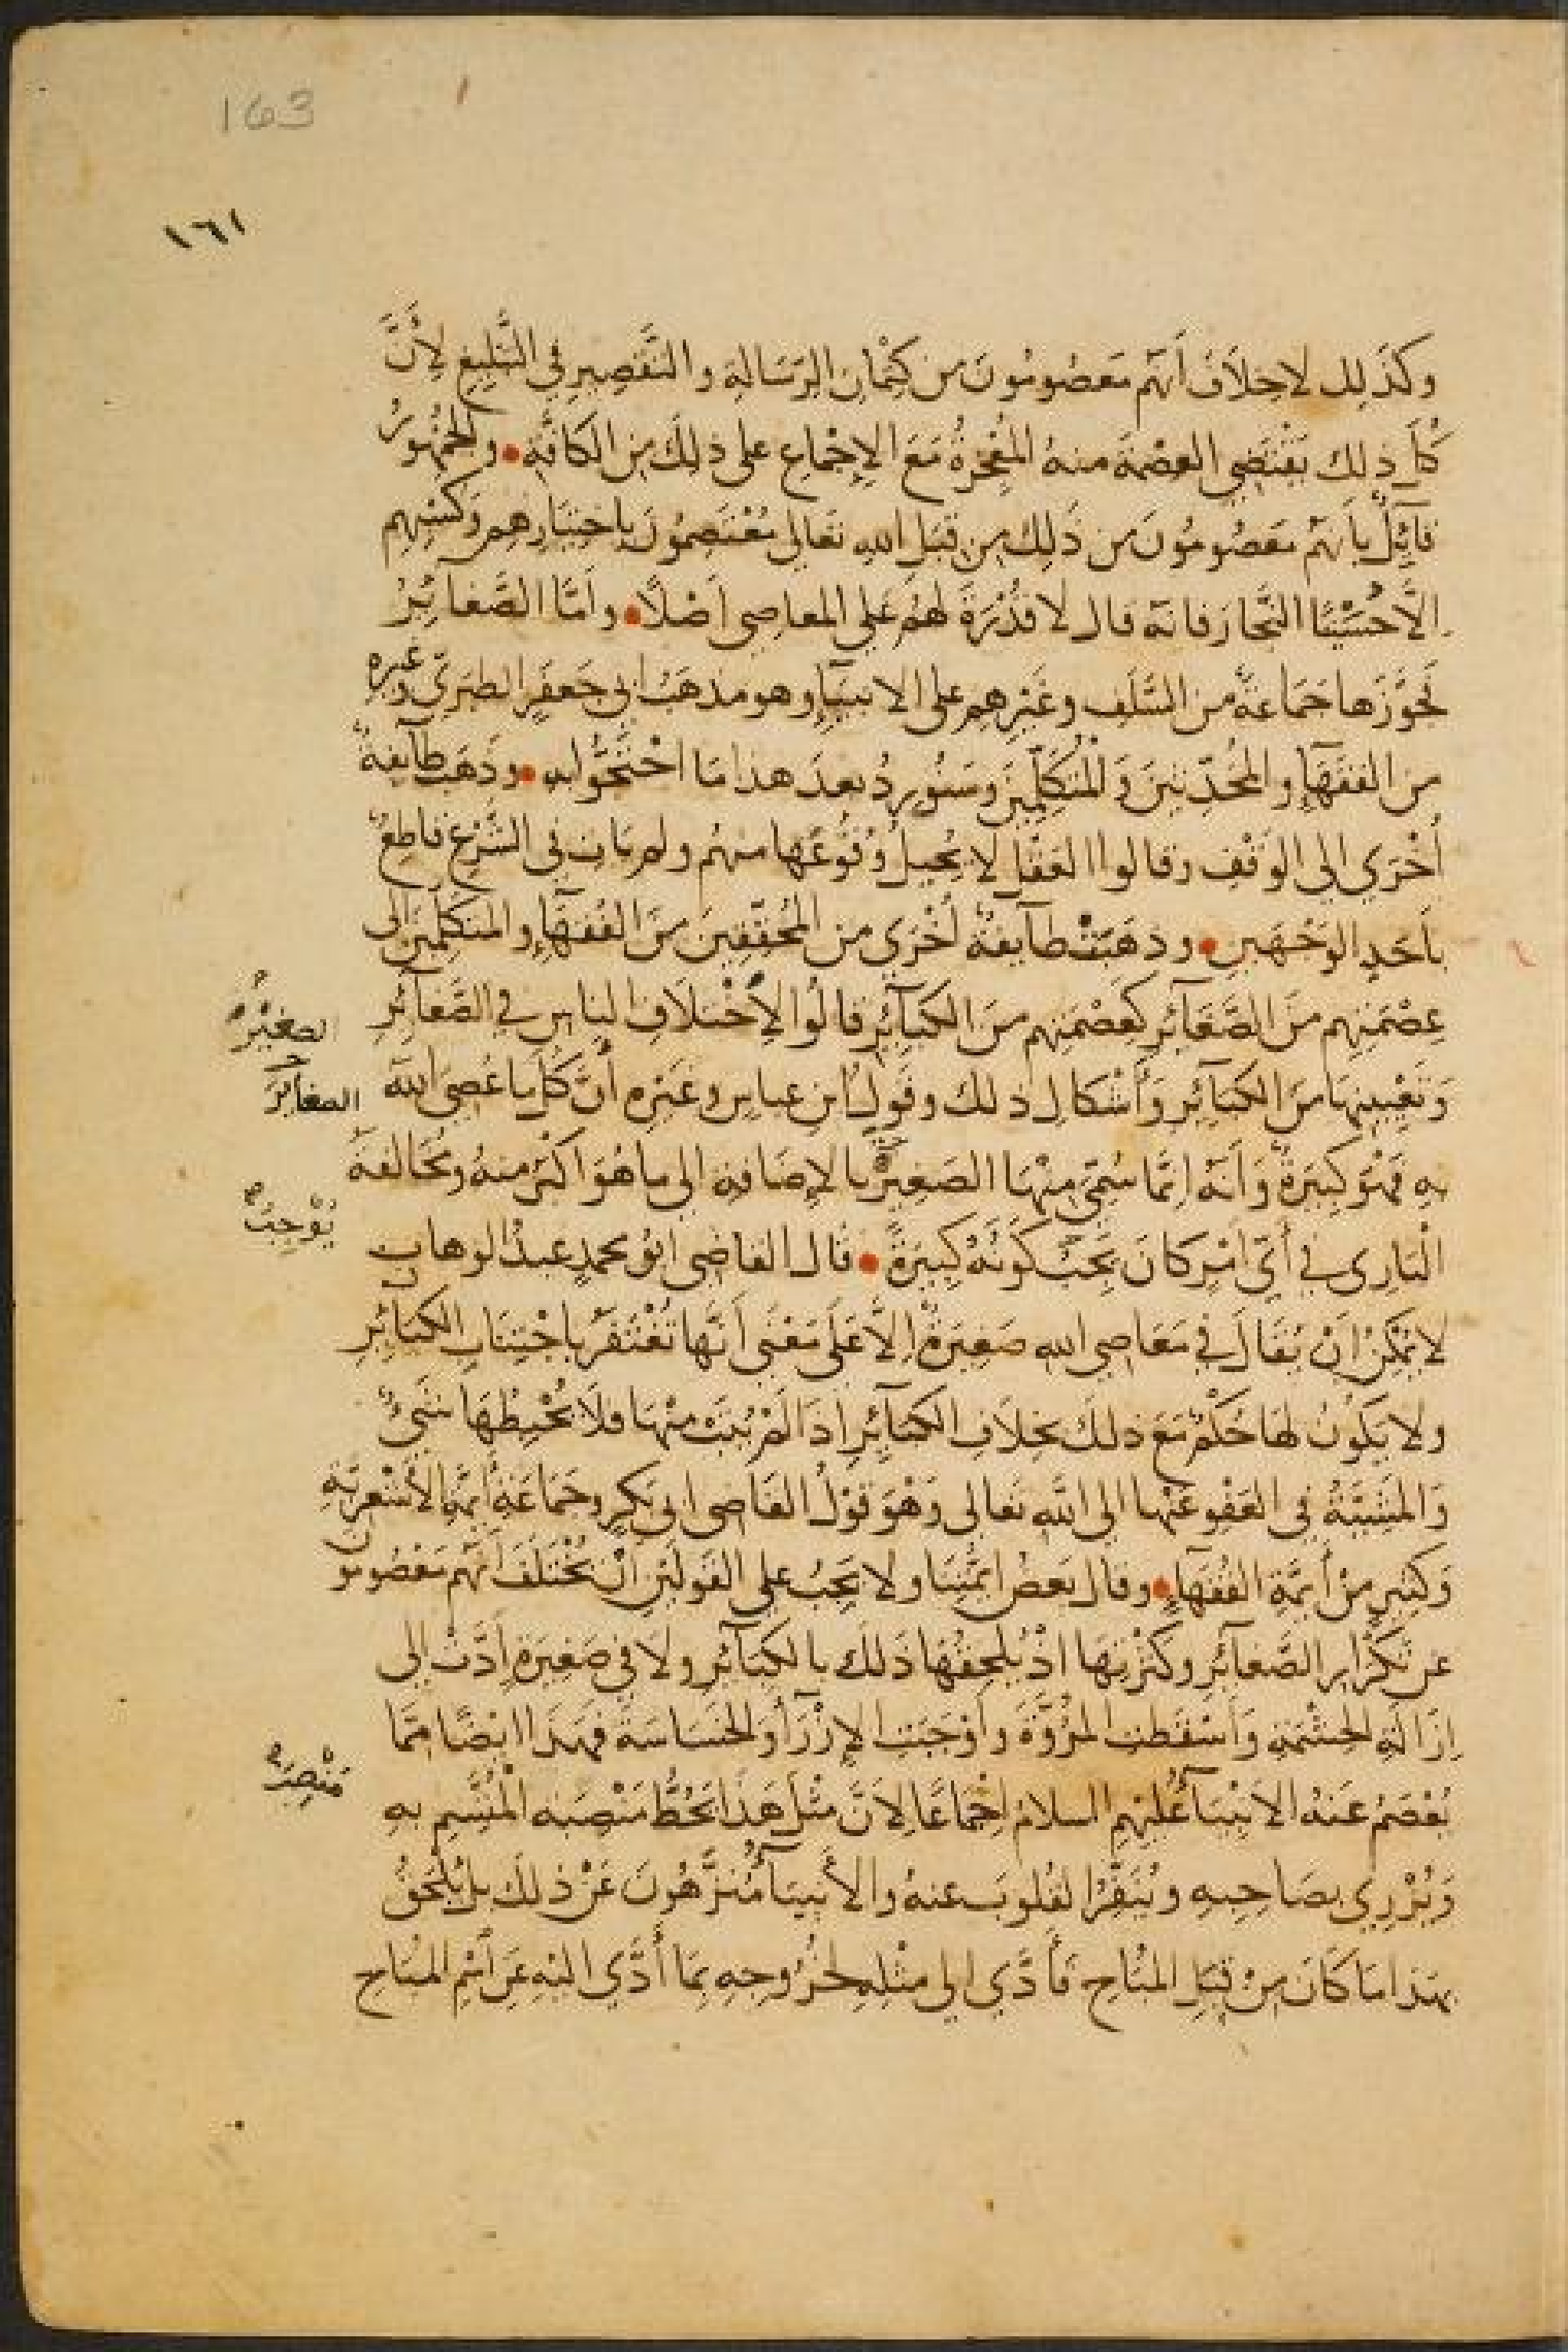 163
١٦١
وَكَذَلِكَ لَاخِلَافَ أَنَّهُم مَعْصُومُونَ مِن كِتْمَانِ الرِّسَالَةِ وَالتَّقْصِيرِ فِي التَّبْلِيغِ لِأَنَّ
كُلَّ ذلك يَقْتَضِي العِصْمَةَ منهُ المُعْجِزَةُ مَعَ الإِجْمَاعِ على ذلِكَ مِن الكَافَّةِ • والجُمْهُورُ
قَائِلٌ بِأَنَّهُمْ مَعْصُومُونَ مِن ذَلِكَ مِن قِبَلِ اللهِ تعَالى مُعْتَصِمُونَ بِاخْتِيَارِهِم وَكَسْبِهِم
الَّاحُسَيْنًا النَّجَّارَ فانه قال لا قُدْرَةَ لهُم عَلى المعاصِي أَصْلًا • وأَمَّا الصَّغَائِرُ
فَجَوَّزَها جَمَاعَةٌ من السَّلَفِ وغَيْرِهِم على الانبيَآءِ وهو مَذهَبُ ابى جَعفَرٍ الطبَرِيّ وغيره
من الفُقَهَآءِ والمُحَدِّثِينَ وَالْمُتَكَلِّمِينَ وسَنُورِدُ بعدَ هذا مَا احْتَجُّوا به • وذَهَبَت طآيفةٌ
أُخْرَي الي الوَقْفِ وقالوا العَقْلُ لا يُحِيلُ وُقُوعَها منهُم ولم يَاتِ في الشَّرْعِ قاطِعٌ
بأَحَدِ الوَجْهَينِ • وذهَبَتْ طآيفةٌ أُخْرَي من المُحَقِّقِينَ مِنَ الفُقَهَآءِ والمتكَلِّمِينَ الى
عِصْمَتِهِم مِنَ الصَّغَآئِرِ كَعِصْمَتِهِم مِنَ الكَبَآئِرِ قالُوا لِاخْتِلَافِ النَاسِ في الصَّغَآئِرِ
الصغيرة
وَتَعْيِينِهَا مِنَ الكَبَآئِرِ وَأَشْكَالِ ذلك وقَولُ ابنِ عباسٍ وغَيْرِهِ أَنَّ كُلَّ ما عُصِيَ اللّه
الصغاير
بهِ فَهُوَ كَبِيرَةٌ وَأَنَّهُ انَّمَا سُمِّيَ مِنْهَا الصَغِيرُ بالإِضَافةِ الى ما هُوَ اكْبَرُ منهُ ومُخَالفَةُ
البَارِى في أَيِّ امْرٍ كَانَ يَجِبُ كَوْنَهُ كَبِيرَةً • قَال القَاضِي ابُو محمدٍ عبدُ الوهاب
يُوْجِبُ
لا يُمْكِنُ انْ يُقَالَ في مَعَاصِي الله صَغِيرَةٌ إِلَّا عَلَى مَعْنَى أَنَّها تُغْتَفَرُ بِاجْتِنَابِ الكَبَآئِرِ
ولا يَكُونُ لهَا حُكْمٌ مَعَ ذلكَ بخِلَافِ الكَبَآئِرِ اذَا لَمْ يُتَبْ مِنْهَا فلَا يُحْبِطُهَا شَيْءٌ
وَالمَشِيَّةُ فى العَفْوِ عَنْها الى اللَّهِ تعَالى وَهْوَ قَوْلُ القَاضِى ابى بَكرٍ وجَمَاعَةِ أَيِمَّةِ الأَشْعَرِيَّةِ
وَكَثيرٍ مِنْ أَيِمَّةِ الفُقَهَآءِ • وقال بَعضُ ايِمَّتِنَا ولا يَجِبُ على القَولَيْنِ أَنْ يُخْتَلَفَ أَنَّهُم مَعْصُومُون
عن تَكْرَارِ الصَّغآئِرِ وكَثْرَتِهَا اذْ يُلحِقُهَا ذَلكَ بالكَبَآئِرِ ولا في صَغِيرَةٍ أَدَّتْ إلى
إِزَالَةِ الحِشْمَةِ وَأَسْقَطَتِ المُرُوَّةَ وأَوْجَبَتِ الإِزْرَآءَ وَالخَسَاسَةَ فهَذَا ايْضًا مِمَّا
يُعْصَمُ عَنهُ الانْبِيَآءُ عَلَيْهِمِ السلامُ إِجْمَاعًا لِأَنَّ مِثْلَ هَذَا يَحُطُّ مَنْصِبَه الْمُتَّسِمَ بهِ
مَنْصِبَ
وَيُزْرِي بصَاحِبِه ويُنَفِّرُ القُلوبَ عنهُ والأَنْبِيَآءُ مُنَزَّهُونَ عَنْ ذلكَ بل يَلْحَقُ
بهَذا مَا كَانَ مِنْ قَبِيلِ المُبَاحِ فأَدَّي الى مثْلِهِ لخُرُوجِهِ بِمَا أَدَّي اليْهِ عَنِ اسْمِ المُبَاحِ